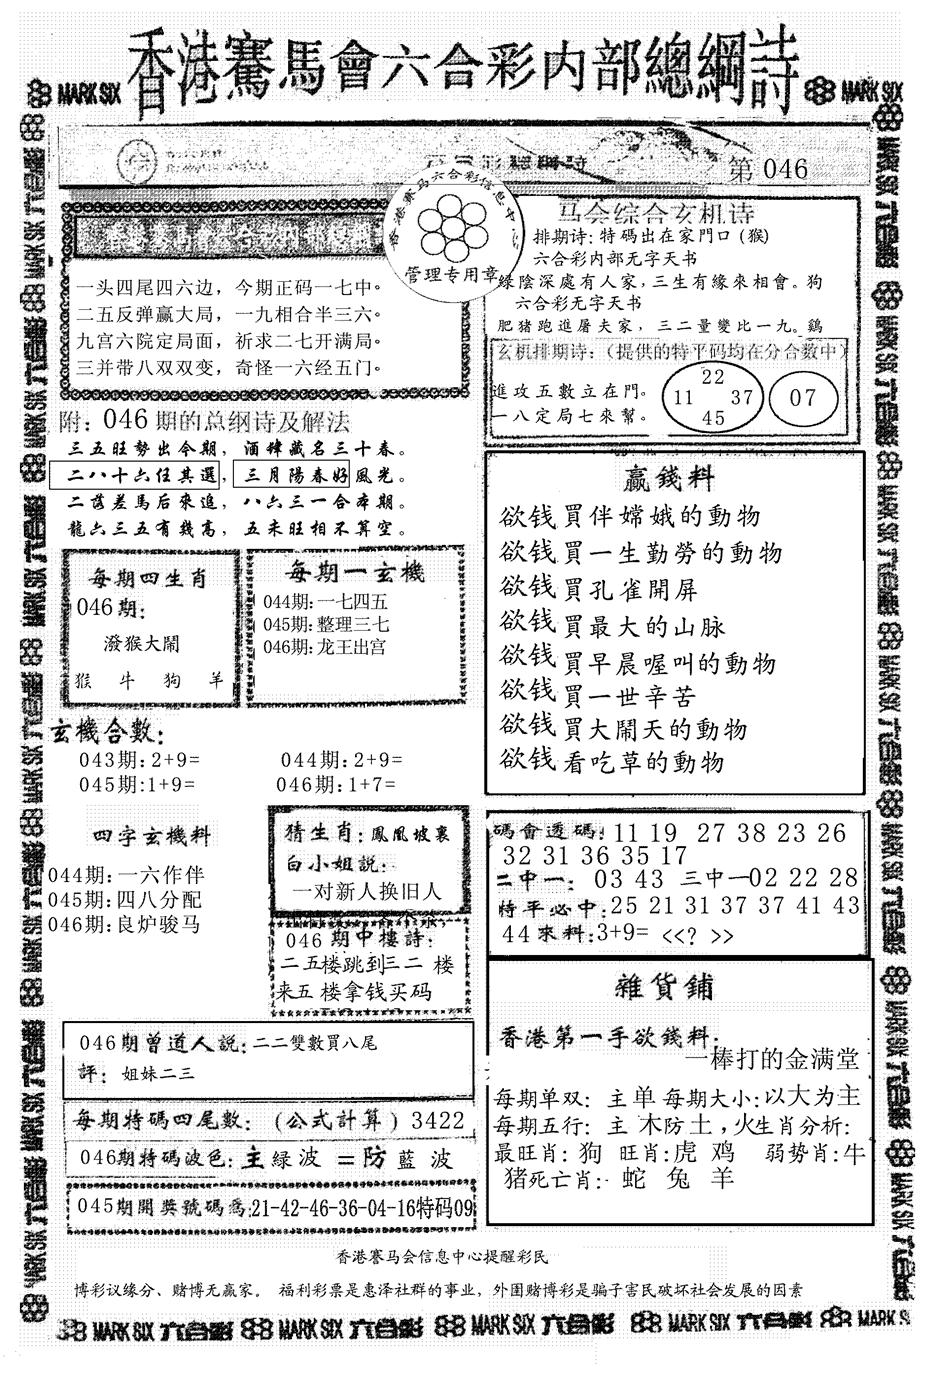 香港賽馬會六合彩内部總綱詩
MARK SIX
MARK SIX
第 046
香港赛马六合彩信息中心
管理专用章
一头四尾四六边，今期正码一七中。
二五反弹赢大局，一九相合半三六。
九宫六院定局面，祈求二七开满局。
三并带八双双变，奇怪一六经五门。
附：046期的总纲诗及解法
三五旺勢出今期，酒肆藏名三十春。
二八十六任其選，三月陽春好風光。
二當差馬后來追，八六三一合本期。
龍六三五有幾高，五未旺相不算空。
每期四生肖
046期：
潑猴大鬧
猴 牛 狗 羊
每期一玄機
044期：一七四五
045期：整理三七
046期：龙王出宫
玄機合數：
043期：2+9= 044期：2+9=
045期：1+9= 046期：1+7=
四字玄機料
044期：一六作伴
045期：四八分配
046期：良炉骏马
猜生肖：鳳凰坡裏
白小姐説：
一对新人换旧人
046期中樓詩：
二五楼跳到三二 楼
来五 楼拿钱买码
046期曾道人説：二二雙數買八尾
評：姐妹二三
每期特碼四尾數：(公式計算) 3422
046期特碼波色：主綠波 =防藍波
045期開獎號碼爲：21-42-46-36-04-16特码09
马会综合玄机诗
排期诗：特碼出在家門口 (猴)
六合彩内部无字天书
綠陰深處有人家，三生有緣來相會。狗
六合彩无字天书
肥猪跑進屠夫家，三二量變比一九。鷄
玄机排期诗：(提供的特平码均在分合数中)
進攻五數立在門。
一八定局七來幫。
22
11 37
45
07
赢錢料
欲钱買伴嫦娥的動物
欲钱買一生勤勞的動物
欲钱買孔雀開屏
欲钱買最大的山脉
欲钱買早晨喔叫的動物
欲钱買一世辛苦
欲钱買大鬧天的動物
欲钱看吃草的動物
碼會透碼：11 19 27 38 23 26
32 31 36 35 17
二中一：03 43 三中一02 22 28
特平必中：25 21 31 37 37 41 43
44來料：3+9= <<? >>
雜貨鋪
香港第一手欲錢料：
一棒打的金满堂
每期单双：主单 每期大小：以大为主
每期五行：主 木防土，火生肖分析：
最旺肖：狗 旺肖：虎 鸡 弱势肖：牛
猪死亡肖：蛇 兔 羊
香港賽马会信息中心提醒彩民
博彩议缘分、赌博无赢家。 福利彩票是惠泽社群的事业，外围赌博彩是骗子害民破坏社会发展的因素
MARK SIX 六合彩 MARK SIX 六合彩 MARK SIX 六合彩 MARK SIX 六合彩 MARK SIX